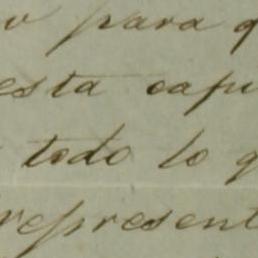 para q
esta capi
todo lo q
represent